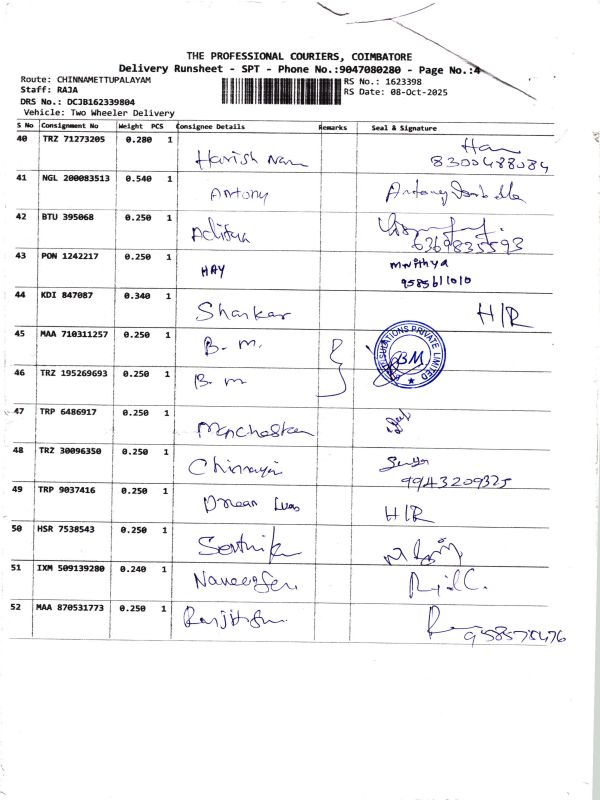 THE PROFESSIONAL COURIERS, COIMBATORE
Delivery Runsheet - SPT - Phone No.:9047080280 - Page No.:4
Route: CHINNAMETTUPALAYAM
RS No.: 1623398
Staff: RAJA
RS Date: 08-Oct-2025
DRS No.: DCJB162339804
Vehicle: Two Wheeler Delivery
S No Consignment No Weight PCS Consignee Details Remarks Seal & Signature
40 TRZ 71273205 0.280 1
Harish Han
8300488084
41 NGL 200083513 0.540 1
Antony Antony
42 BTU 395068 0.250 1
Aditya
6369835593
43 PON 1242217 0.250 1
HAY M Nithya
9585611010
44 KDI 847087 0.340 1
Shankar H/R
45 MAA 710311257 0.250 1
B. M. PRIVATE LIMITED
BM
46 TRZ 195269693 0.250 1
B. M
47 TRP 6486917 0.250 1
Manchester
48 TRZ 30096350 0.250 1
Chinnaya
9943209325
49 TRP 9037416 0.250 1
Dream H/R
50 HSR 7538543 0.250 1
51 IXM 509139280 0.240 1
52 MAA 870531773 0.250 1